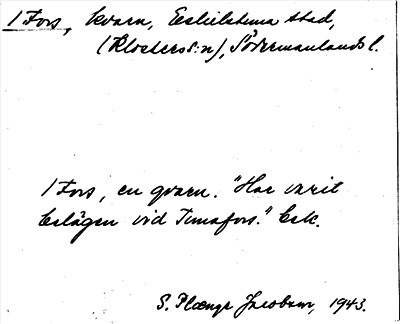 1 Fors, kvarn, Eskilstuna stad,
(Klosters s:n), Södermanlands l.
1 Fors, en qvarn. "Har varit
belägen vid Tunafors." Esk.
S. Plænge Jacobson, 1943.